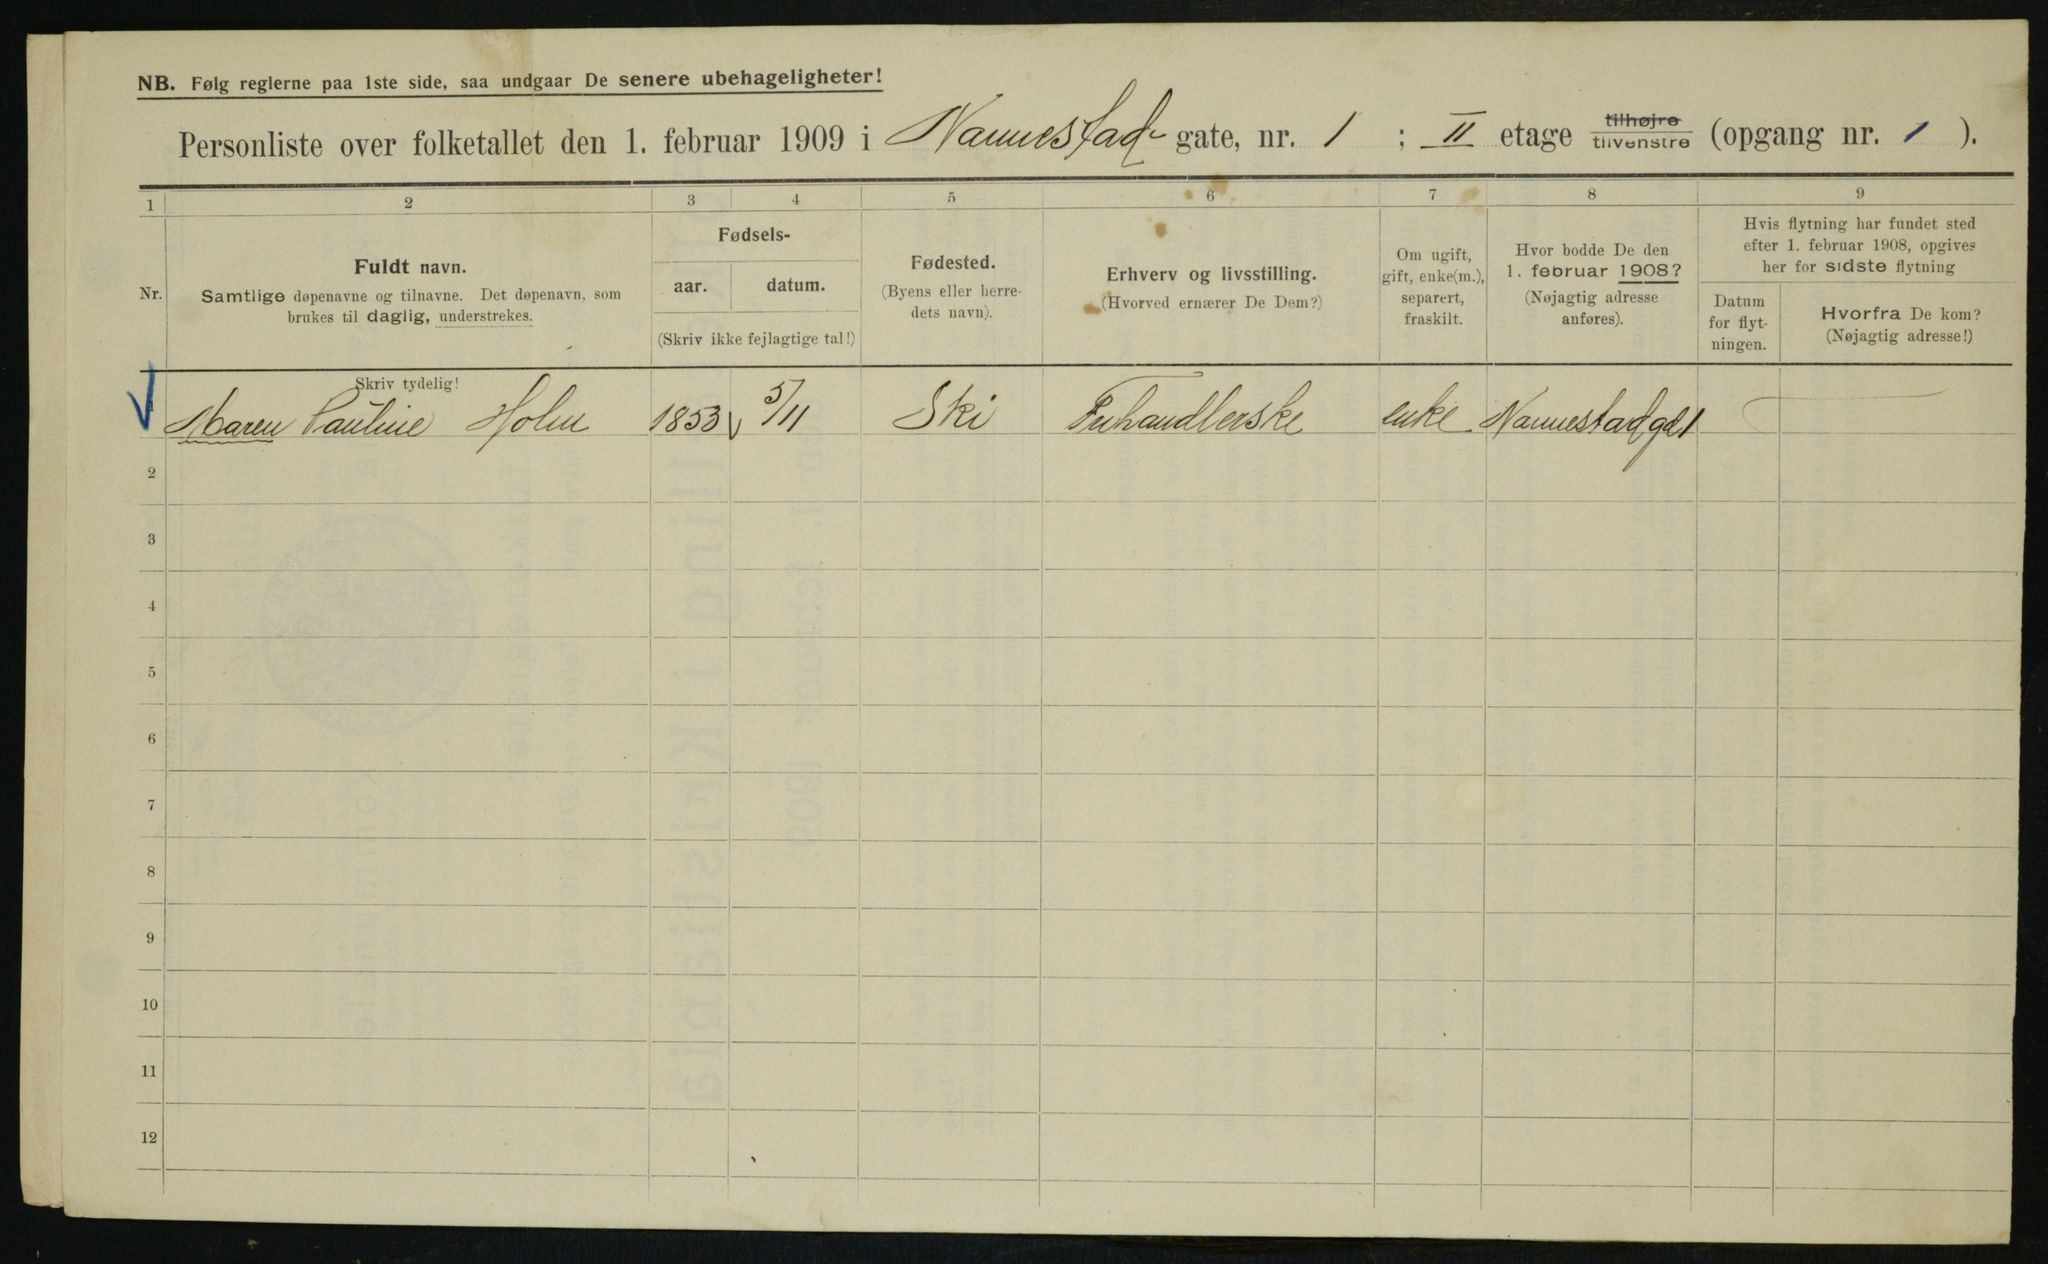 NB. Følg reglerne paa 1ste side, saa undgaar De senere ubehageligheter!
Personliste over folketallet den 1. februar 1909 i Nannestad- gate, nr. 1 ; II etage tilhøjre tilvenstre (opgang nr. 1 ).
1 2 3 4 5 6 7 8 9
Nr.
Fuldt navn.
Samtlige døpenavne og tilnavne. Det døpenavn, som
brukes til daglig, understrekes.
Fødsels-
aar. datum.
(Skriv ikke fejlagtige tal!)
Fødested.
(Byens eller herre-
dets navn).
Erhverv og livsstilling.
(Hvorved ernærer De Dem?)
Om ugift,
gift, enke(m.),
separert,
fraskilt.
Hvor bodde De den
1. februar 1908?
(Nøjagtig adresse
anføres).
Hvis flytning har fundet sted
efter 1. februar 1908, opgives
her for sidste flytning
Datum
for flyt-
ningen.
Hvorfra De kom?
(Nøjagtig adresse!)
Skriv tydelig!
1 Maren Pauline Holm 1853 5/11 Ski enke Nannestadgd 1
2
3
4
5
6
7
8
9
10
11
12